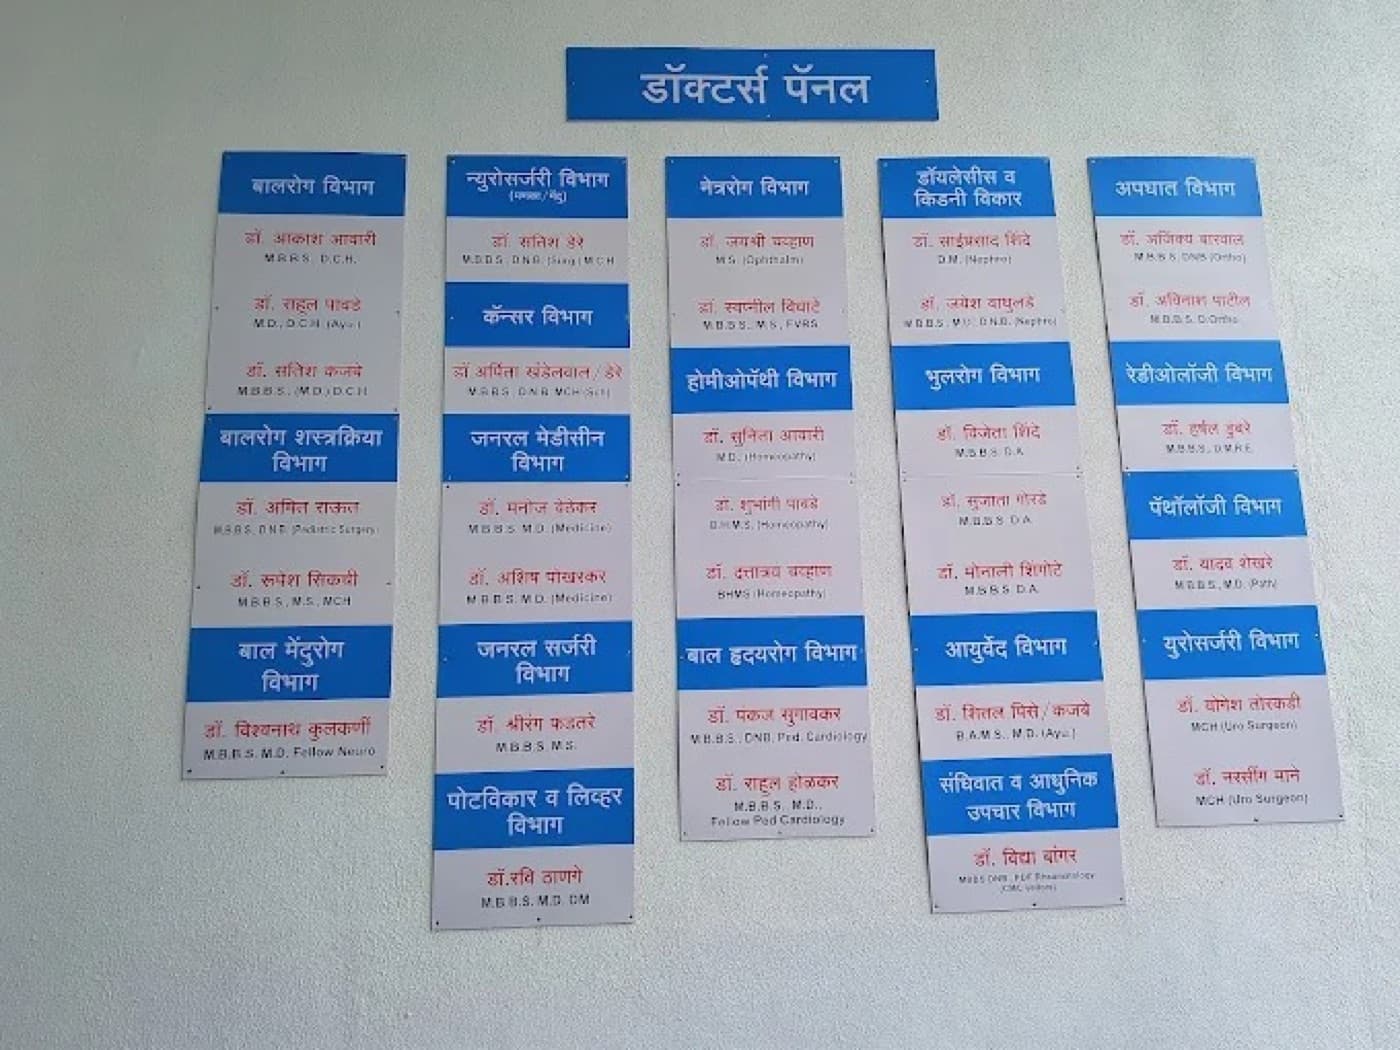 डॉक्टर्स पॅनल
बालरोग विभाग
डॉ. आकाश आवारी
M.B.B.S., D.C.H.
डॉ. राहूल पावडे
M.D., D.C.H. (Ayu.)
डॉ. सतिश कजबे
M.B.B.S., (M.D.) D.C.H
बालरोग शस्त्रक्रिया
विभाग
डॉ. अमित राऊत
M.B.B.S., D.N.B. (Pediatric Surgery)
डॉ. रूपेश सिकची
M.B.B.S., M.S., MCH
बाल मेंदुरोग
विभाग
डॉ. विश्वनाथ कुलकर्णी
M.B.B.S. M.D. Fellow Neuro
न्युरोसर्जरी विभाग
(मणका/मेंदु)
डॉ. सतिश डेरे
M.B.B.S., D.N.B. (Surg.) M.C.H
कॅन्सर विभाग
डॉ अर्पिता खंडेलवाल / डेरे
M.B.B.S., D.N.B. MCH
जनरल मेडीसीन
विभाग
डॉ. मनोज देठेकर
M.B.B.S. M.D. (Medicine)
डॉ. अशिष पोखरकर
M.B.B.S. M.D. (Medicine)
जनरल सर्जरी
विभाग
डॉ. श्रीरंग फडतरे
M.B.B.S. M.S.
पोटविकार व लिव्हर
विभाग
डॉ.रवि ठाणगे
M.B.B.S. M.D. DM
नेत्ररोग विभाग
डॉ. जयश्री चव्हाण
M.S. (Ophthalm)
डॉ. स्वप्नील विघाटे
M.B.B.S., M.S., FVRS
होमीओपॅथी विभाग
डॉ. सुनिता आवारी
M.D. (Homeopathy)
डॉ. शुभांगी पावडे
B.H.M.S. (Homeopathy)
डॉ. दत्तात्रय चव्हाण
BHMS (Homeopathy)
बाल हृदयरोग विभाग
डॉ. पंकज सुगावकर
M.B.B.S., DNB, Ped. Cardiology
डॉ. राहूल होळकर
M.B.B.S., M.D.,
Fellow Ped Cardiology
डॉयलेसीस व
किडनी विकार
डॉ. साईप्रसाद शिंदे
D.M. (Nephro)
डॉ. जयेश वाघुलडे
M.B.B.S., M.D., D.N.B. (Nephro)
भुलरोग विभाग
डॉ. विजेता शिंदे
M.B.B.S. D.A.
डॉ. सुजाता गोरडे
M.B.B.S. D.A.
डॉ. मोनाली शिंगोटे
M.B.B.S. D.A.
आयुर्वेद विभाग
डॉ. शितल पिसे / कजबे
B.A.M.S., M.D. (Ayu.)
संधिवात व आधुनिक
उपचार विभाग
डॉ. विद्या बांगर
MBBS DNB, PDF Rheumatology
(CMC Vellore)
अपघात विभाग
डॉ. अजिंक्य बारवाल
M.B.B.S. DNB (Ortho)
डॉ. अविनाश पाटील
M.B.B.S. D.Ortho
रेडीओलॉजी विभाग
डॉ. हर्षल डुबरे
M.B.B.S., D.M.R.E.
पॅथॉलॉजी विभाग
डॉ. यादव शेखरे
M.B.B.S., M.D. (Path)
युरोसर्जरी विभाग
डॉ. योगेश तोरकडी
MCH (Uro Surgeon)
डॉ. नरसींग माने
MCH (Uro Surgeon)